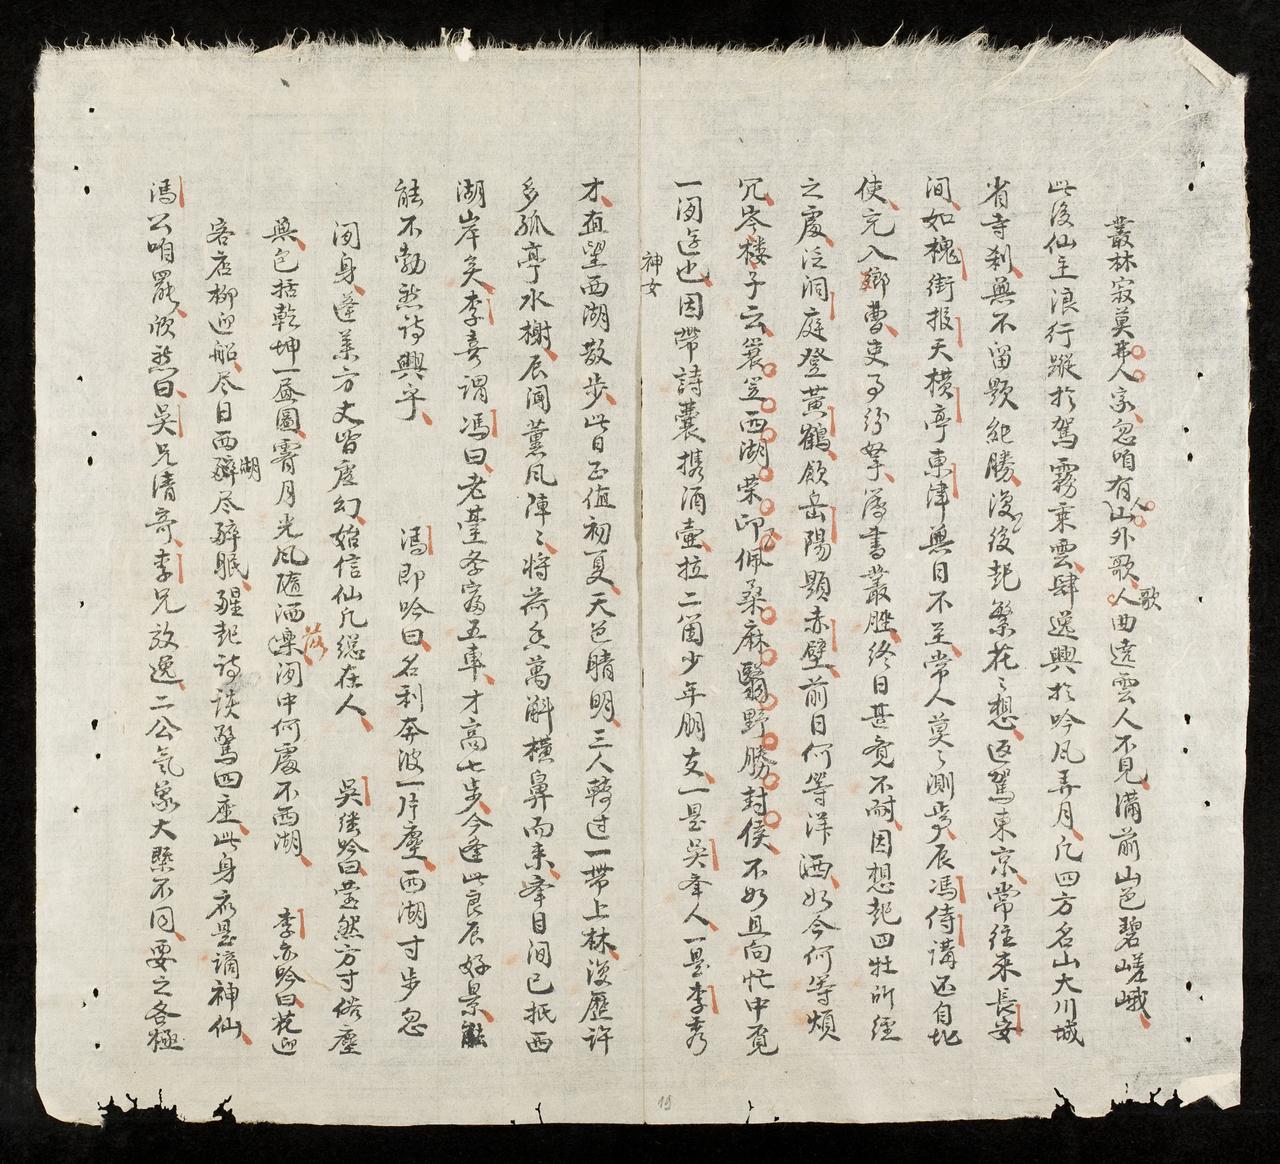 叢林寂莫弗人家忽咱有山人外歌歌人曲遶雲人不見滿前山色碧嵯峨
此後仙主浪行蹤於駕霧乘雲肆逸興於吟風弄月凡四方名山大川城
省寺刹無不留題紀勝後乃後起繁花〻想返駕東京常往來長安
间如槐街报天橫亭東津無日不至常人莫之測歲辰馮侍講还自北
使充入鄉曹吏事紛拏簿書叢脞終日甚覓不耐因想起四牡所經
之處泛洞庭登黃鶴飲岳陽題赤壁前日何等洋洒如今何等煩
冗岑楼子云簑笠西湖荣印佩桑麻翳野勝封侯不如且向忙中覓
一闲逰也因帶詩囊携酒壶拉二箇少年朋友一是吳峯人一是李秀
神女
才直望西湖散步此日正值初夏天色晴明三人轉过一帶上林後歷許
多孤亭水榭辰闻薰風陣〻将荷香萬斛橫鼻而来举目间已抵西
湖岸矣李喜谓馮曰老臺李富五車才高七步今逢此良辰好景能
能不勃然诗興乎 馮即吟曰名利奔波一片塵西湖寸步忽
闲身蓬莱方丈皆虚幻始信仙凡縂在人 吳継吟曰瑩然方寸俗塵
無包括乾坤一昼圖霽月光風随洒落湖中何處不西湖 李亦吟曰花迎
客店柳迎船尽日西湖尽醉眠醒起诗谈驚四座此身疑是謫神仙
馮公咱罷欣然曰吳兄清奇李兄放逸二公氣象大槩不同要之各極
19